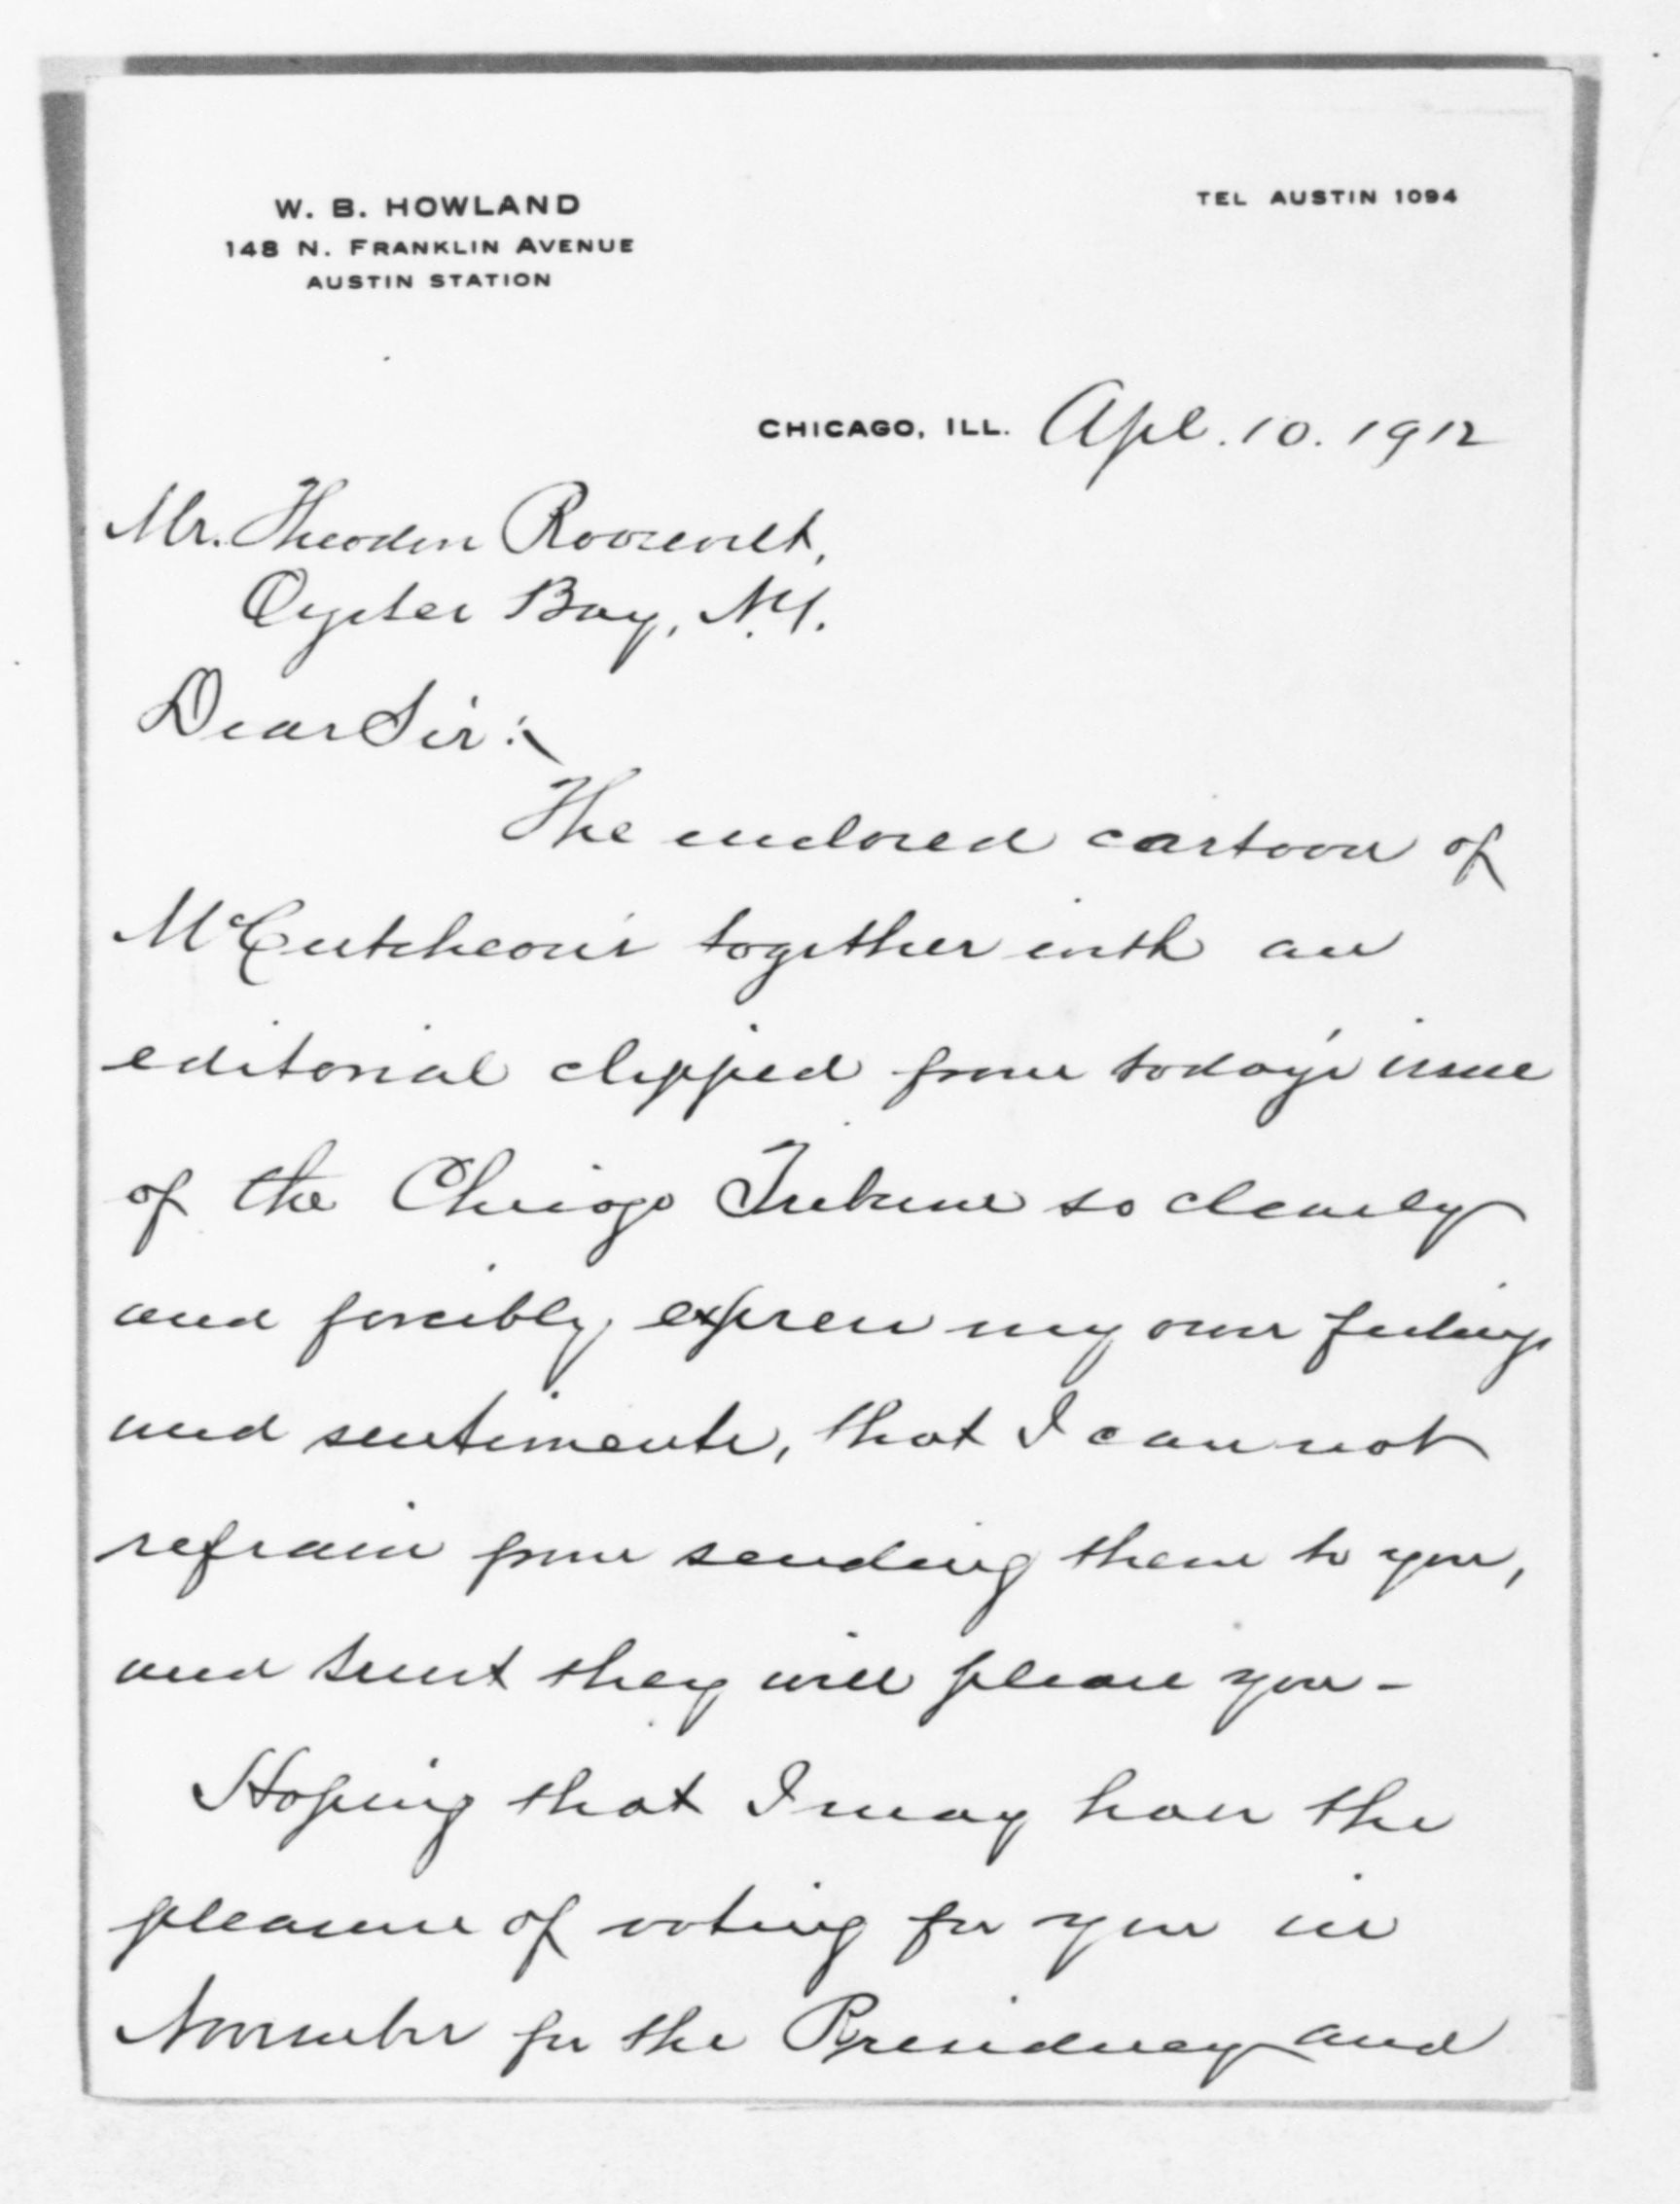 W. B. HOWLAND
148 N. FRANKLIN AVENUE
AUSTIN STATION
TEL AUSTIN 1094
CHICAGO, ILL. Apl. 10. 1912
Mr. Theodore Roosevelt,
Oyster Bay, N.Y.
Dear Sir:
The enclosed cartoon of
McCutcheon's together with an
editorial clipped from today's issue
of the Chicago Tribune so clearly
and forcibly express my own feelings
and sentiments, that I cannot
refrain from sending them to you,
and trust they will please you -
Hoping that I may have the
pleasure of voting for you in
November for the Presidency and